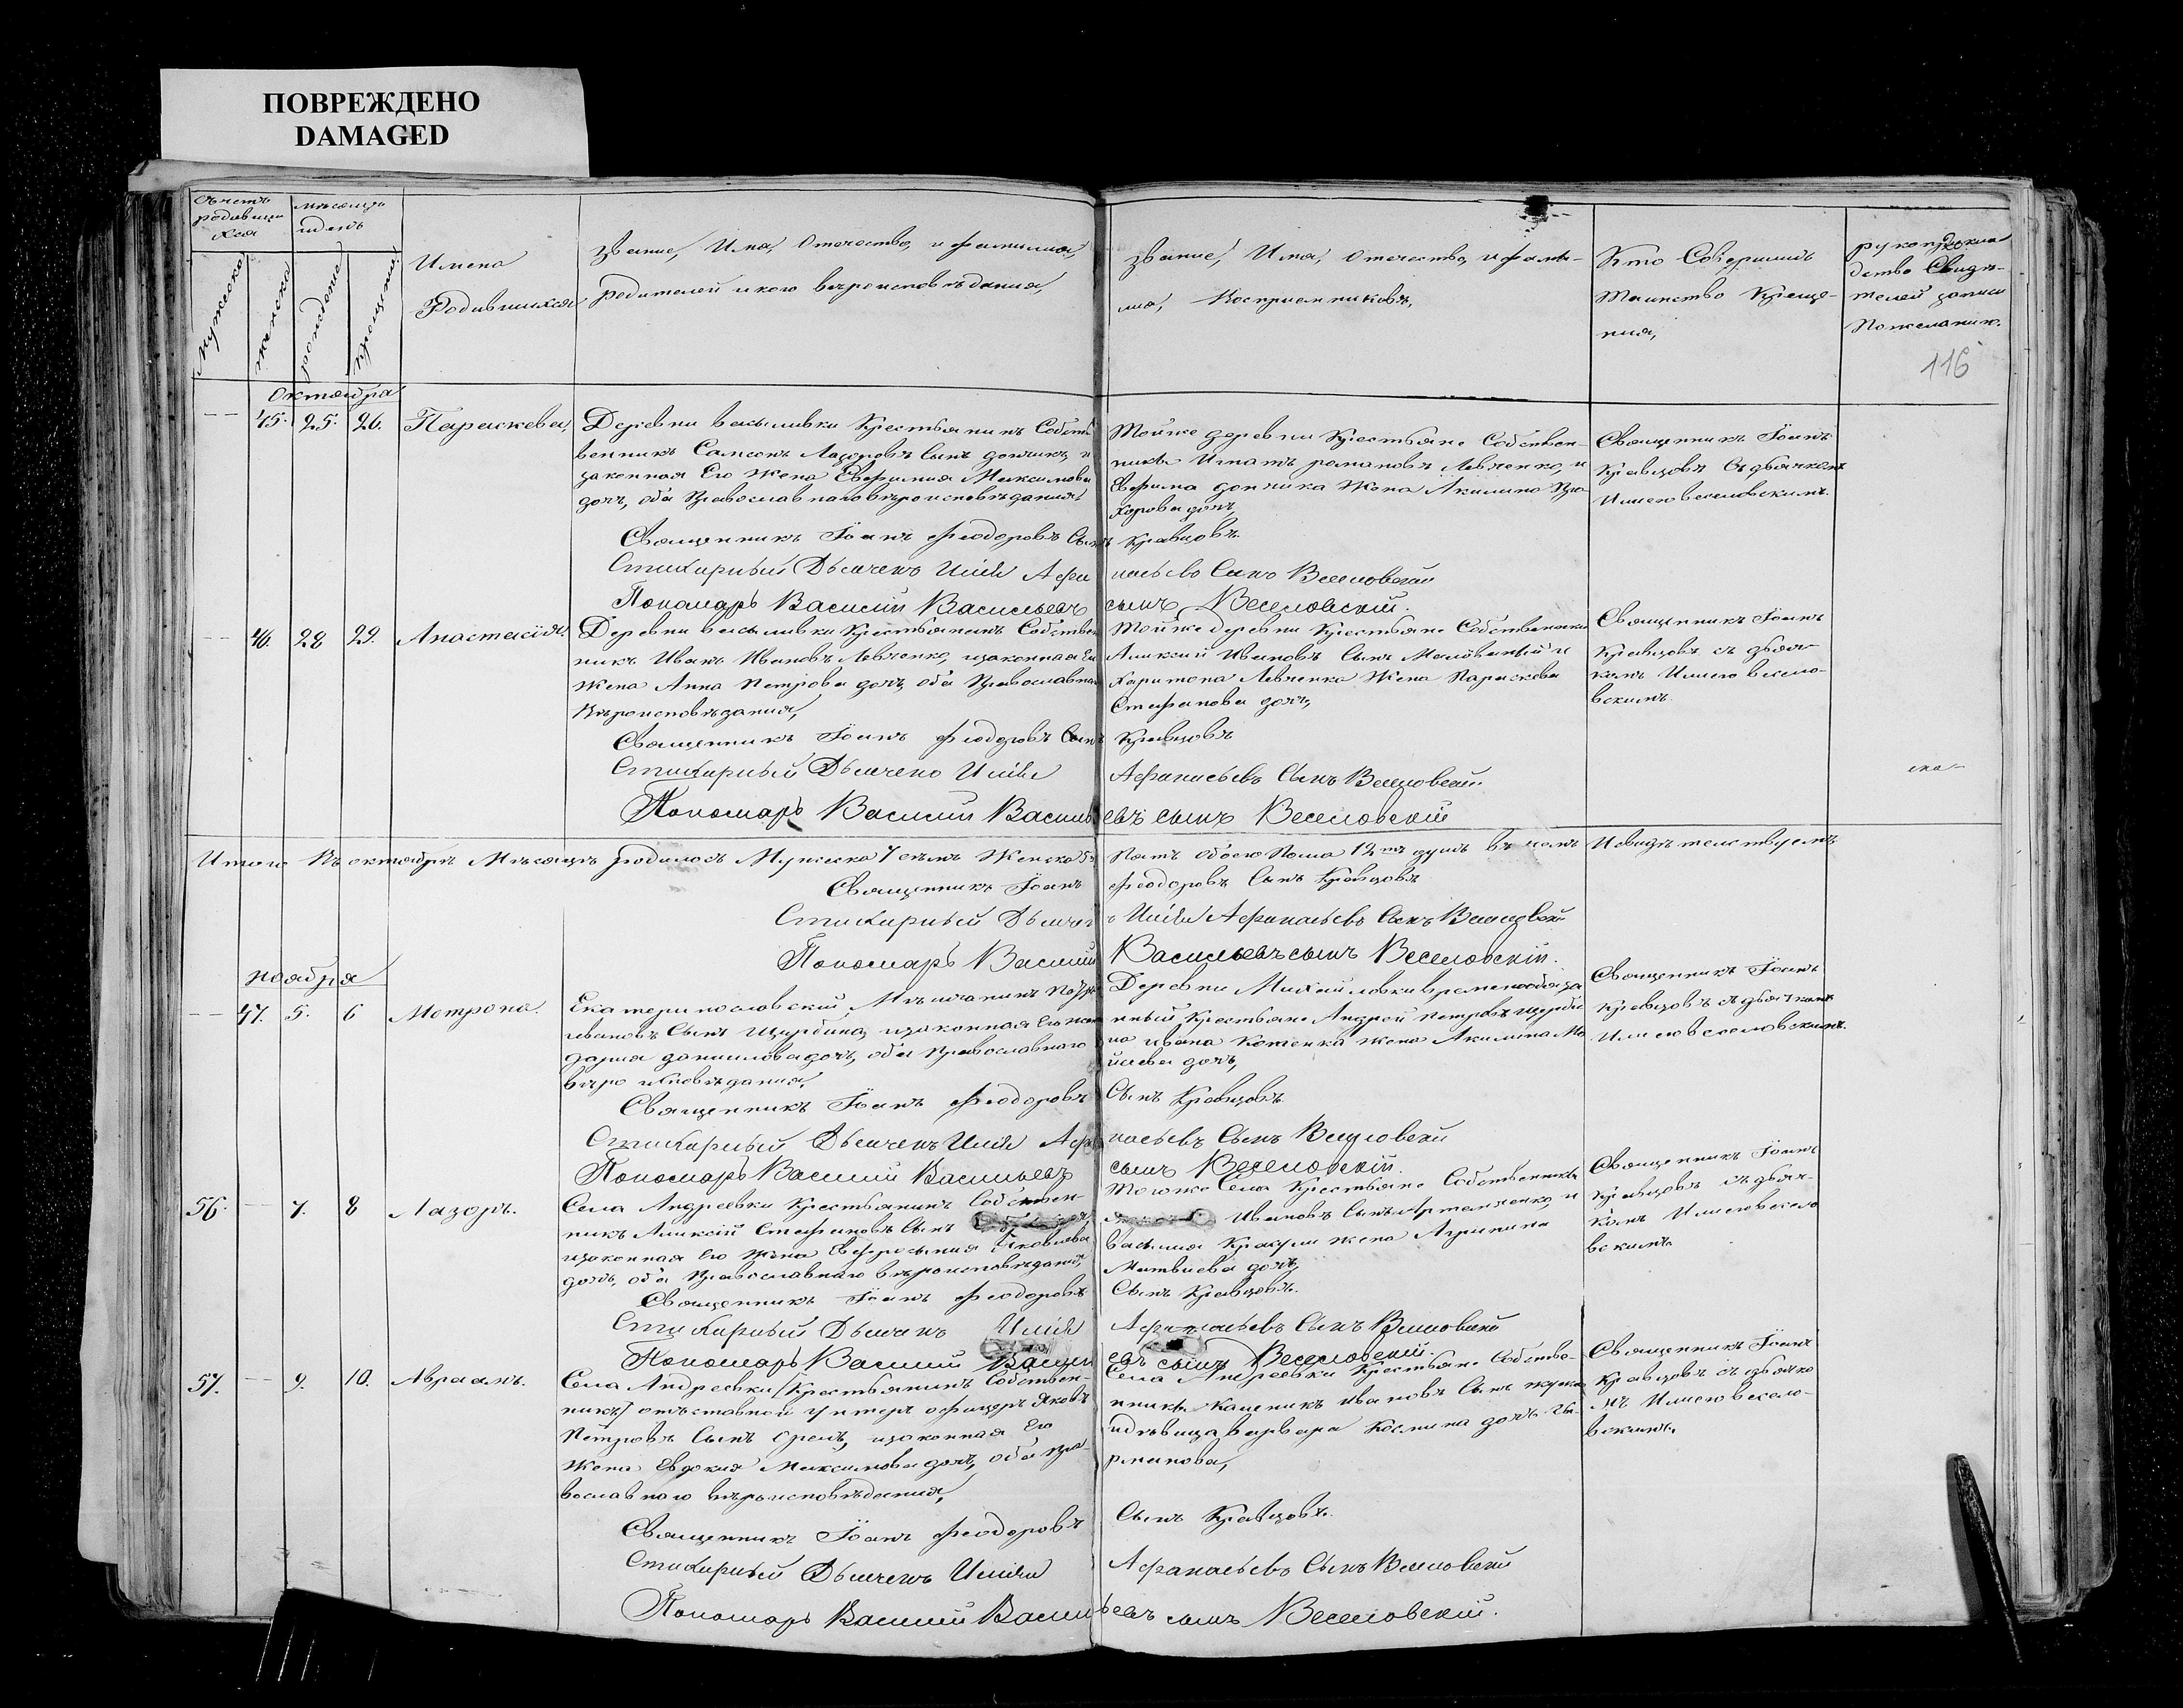 ПОВРЕЖДЕНО
DAMAGED
Имена
Родившихся
Званіе, Имя, Отечество, и фамилія,
родителей и кого вѣроисповѣданія,
Званіе, Имя, Отечество, и фами-
лія, Воспріемниковъ,
Кто Совершилъ
Таинство Креще-
нія,
116
мужеска
женска
рожденіе
крещеніе
Октября
45. 25. 26. Параскева,
Деревни Крестьянинъ Собст
венникъ Самсонъ Лазоровъ Сынъ и
законная Его Жена Евфимия Максимова
дочь, оба Православнаго вѣроисповѣданія
Тойже деревни Крестьяне Собствен-
ники Игнатъ романовъ Левченко, и
Жена Акилина Про
хорова дочь,
Священникъ Іоанъ
Кравцовъ Съ дьячкомъ
Илиею Веселовскимъ.
Священникъ Іоанъ Феодоровъ Сынъ Кравцовъ.
Стихарный Дьячекъ Илія Афанасьевъ Сынъ Веселовскій
Пономарь Василий Васильевъ сынъ Веселовскій.
46. 28 29. Анастасія.
Деревни Крестьянинъ Собствен
никъ Иванъ Ивановъ Левченко, и законная Ег
Жена Анна Петрова дочь, оба Православнаг
Вѣроисповѣданія,
Тойже деревни Крестьяне Собственники
Аликсий Ивановъ Сынъ и
Харитона Левченка Жена Параскева
Стефанова дочь,
Священникъ Іоанъ
Кравцовъ съ дьяч-
комъ Илиею Весело-
вскимъ.
Священникъ Іоанъ Феодоровъ Сынъ Кравцовъ
Стихарный Дьячекъ Илія Афанасьевъ Сынъ Веселовскій.
Пономарь Василий Васильевъ сынъ Веселовскій
Итого Въ октябрѣ Мѣсяцѣ родилось Мужеска 7 семь Женска 5 Пять обоего Пола 12 душъ въ чемъ И свидѣтельствуемъ
Священникъ Іоанъ Феодоровъ Сынъ Кравцовъ
Стихарный Дьячекъ Илія Афанасьевъ Сынъ Веселовскій
Пономарь Василий Васильевъ сынъ Веселовскій.
ноября
47. 5. 6 Матрона.
Екатеринославский Мѣщанинъ
ивановъ Сынъ Щербина, и законная Его жена
дария даниилова дочь, оба Православнаго
вѣроисповѣданія,
Деревни Михайловки временнообяза
нный Крестьяне Андрей Петровъ Щерби
на ивана Котенка жена Акилина Мо
йсеева дочь,
Священникъ Іоанъ
Кравцовъ съ дьячкомъ
Илиею Веселовскимъ.
Священникъ Іоанъ Феодоровъ Сынъ Кравцовъ.
Стихарный Дьячекъ Илія Афанасьевъ Сынъ Веселовскій
Пономарь Василий Васильевъ сынъ Веселовскій.
56. 7. 8 Лазоръ.
Села Андреевки Крестьянинъ Собствен-
никъ Аликсій Стефановъ Сынъ
и законная Его жена Евфросыния Яковлева
дочь, оба Православнаго вѣроисповѣданія,
Тогоже Села Крестьяне Собственники
Ивановъ Сынъ Артеменко, и
Жена Агрипина
Матвиева дочь,
Священникъ Іоанъ
Кравцовъ съ дьяч-
комъ Илиею Весело
вскимъ.
Священникъ Іоанъ Феодоровъ Сынъ Кравцовъ.
Стихарный Дьячекъ Илія Афанасьевъ Сынъ Веселовскій
Пономарь Василий Васильевъ сынъ Веселовскій.
57. 9. 10. Авраамъ.
Села Андреевки Крестьянинъ Собствен-
никъ отъставной унтеръ офицеръ Яковъ
Петровъ Сынъ Орелъ, и законная Его
Жена Евдокия Максимова дочь, оба Пра-
вославнаго вѣроисповѣданія,
Села Андреевки Крестьяне Собстве-
нники ивановъ Сынъ
и дѣвица Варвара Космина дочь
Священникъ Іоанъ
Кравцовъ съ дьячко
мъ Илиею Весело-
вскимъ,
Священникъ Іоанъ Феодоровъ Сынъ Кравцовъ.
Стихарный Дьячекъ Илія Афанасьевъ Сынъ Веселовскій
Пономарь Василий Васильевъ сынъ Веселовскій.